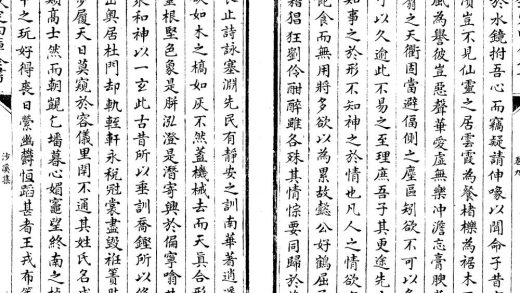 於水鏡拊吾心而竊疑請伸喙以聞命子昔
豈不見仙靈之居雲霞為餐楮櫟為裾木
風為譽彼豈惡聲華愛虛無樂沖澹忘膏腴
翁之天衢固當避偪側之塵區矧欲不可
可以久逾此不易之至理庶吾子其更途先
如事之於形不知神之於情也凡人之情欲
飽食而無用將多欲以為累故懿公好鶴屈
籍猖狂劉伶酣醉雖各殊其情悰要同歸於
卷九
沙溪集
止詩詠塞淵先民有靜安之訓南華著逍
如木之槁如灰不然蓋機械去而天真合形
根堅色象是胼泓澄是潛寄興於偪寧喻其
永和神以一玄此古昔所以垂訓喬鏗所以
輿居杜門却軌輕軒永稅冠裳盡毀袵簀
步履天日莫窺於容儀里閈不通其姓氏名
高士然而朝覿乞墦暮心媚竈望終南之
中之玩好得喪日縈幽欝恒蹈甚者王戎布